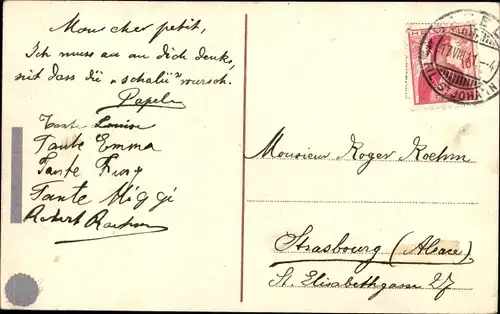 Mon cher petit,
Ich muss an an dich denke,
seit dass du „schalü" wursch.
Papele
Tante Louise
Tante Emma
Tante
Tante Miggi
Robert
Monsieur Roger Roehm
Strasbourg (Alsace)
St. Elisabethgasse 27